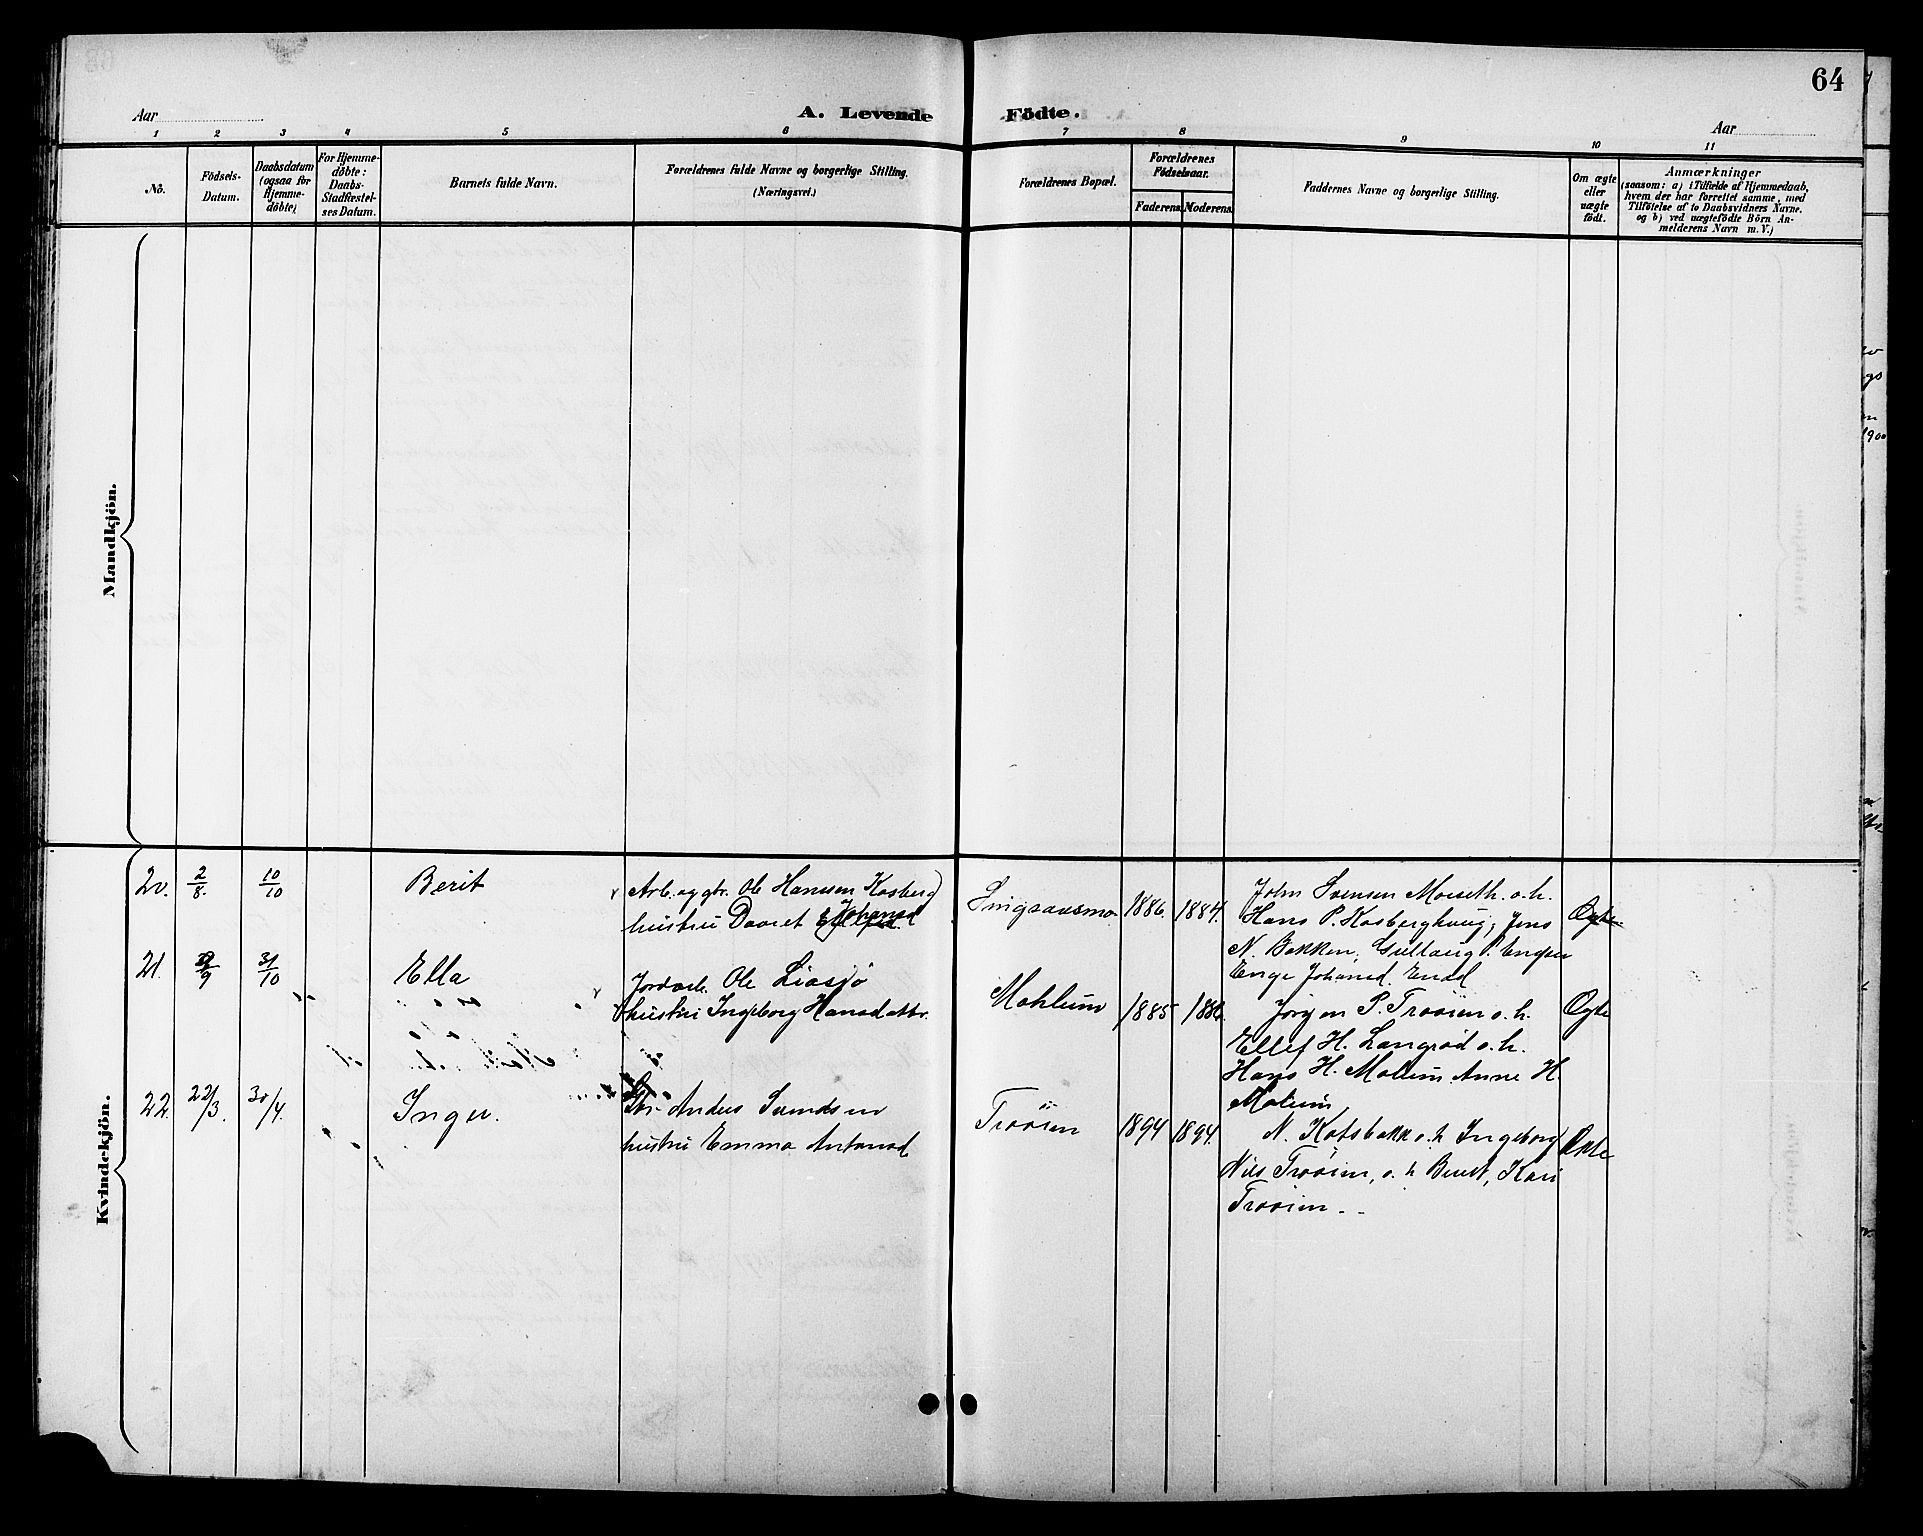 64
Aar
A. Levende Födte.
Aar
1 2 3 4 5 6 7 8 9 10 11
Nô.
Födsels-
Datum.
Daabsdatum
(ogsaa for
Hjemme-
döbte)
For Hjemme-
döbte:
Daabs-
Stadfæstel-
ses Datum.
Barnets fulde Navn.
Forældrenes fulde Navne og borgerlige Stilling.
(Næringsvei.)
Forældrenes Bopæl.
Forældrenes
Födselsaar.
Faderens. Moderens.
Faddernes Navne og borgerlige Stilling.
Om ægte
eller
uægte
födt.
Anmærkninger
(saasom: a) i Tilfælde af Hjemmedaab,
hvem der har forrettet samme, med
Tilföielse af to Daabsvidners Navne,
og b) ved uægtefödte Börn An-
melderens Navn m. V.)
Mandkjön.
Kvindekjön.
20. 2/8. 10/10 Berit
Arb. og gbr. Ole Hansen Kosberg
hustru Daaret Johansd
Singsaasmo 1886. 1884.
John Svensen Moseth o. h.
Hans P. Kosberghaug, Jens
N. Bakken, Gullaug P. Engen
Enge Johansd. Endal
Ægte
21. /9 31/10 Ella
Jordarb. Ole Liasjø
hustru Ingeborg Hansdattr.
Mohlum 1885 1886.
Jørgen P. Troøien o. h.
Ellef H. Langrød o. h.
Hans H. Molum Anne H.
Molum
Ægte
22. 22/3. 30/4. Inger.
Gbr. Anders Svendsen
hustru Emma Antonsd
Troøien 1894 1894.
N. Kotsbakk o. h Ingeborg
Nils Troøien, o. h Beret, Kari
Troøien. -
Ækte